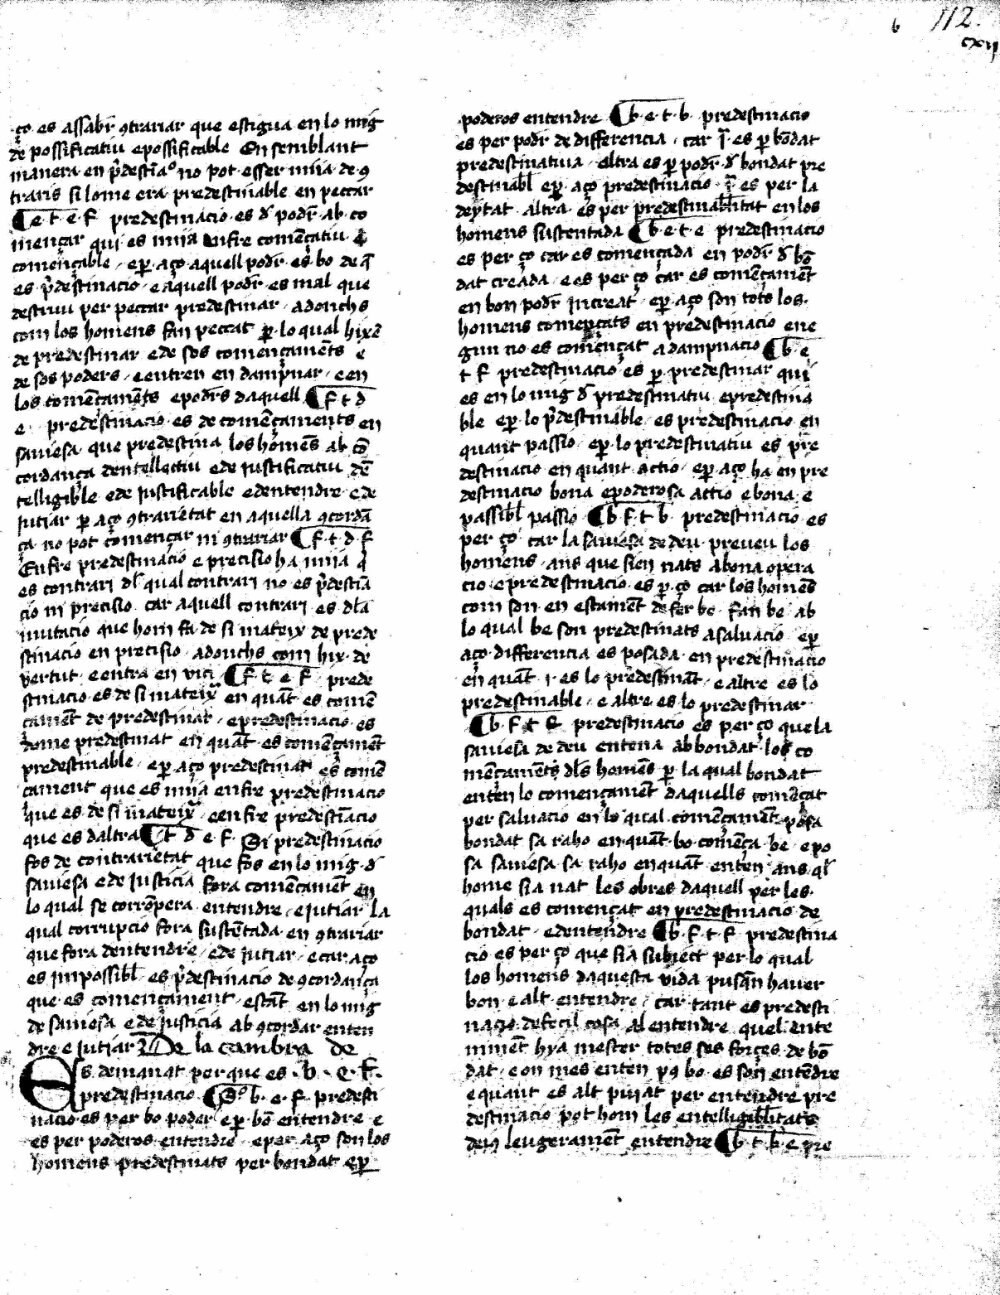 b 112.
cxij
ço es assabr 9trariar que estigua en lo mig
de possificatiu e possificable En semblant
manera en p̄destia͞o no pot esser mija de 9
traris si lome era predestinable en peccar
¶ e t e f predestinacio es d̄ podr̄ ab co
mençar qui es mija enfre començatiu e
començable · e per aço aquell podr̄ es bo de q̄
es p̄destinacio · e aquell podr̄ es mal que
destruu per peccar predestinar · adonchs
com los homens fan peccat per lo qual hixē
de predestinar e de sos començamēts e
de sos poders · e entren en dampnar · e en
los comēcamēts e podr̄s daquell ¶ f t d
e · predestinacio es de comēçaments en
sauiesa que predestina los homēs ab cō
cordança dentellectiu e de justificatiu dē
telligible e de justificable e dentendre e de
jutjar per aço 9trarietat en aquella 9cordā
ça no pot començar ni 9trariar ¶ f t d f
Enfre predestinacio e precisio ha mija q̄
es contrari dl̄ qual contrari no es p̄destia
cio ni precisio car aquell contrari es dl̄a
mutacio que hom fa de si mateix de prede
stinacio en precisio · adonchs com hix de
vertut e entra en vici ¶ f t e f prede
stinacio es de si mateix en quant es comē
cament de predestinat · e predestinacio es
home predestinat en quāt es començament
predestinable · e per aço predestinat es comē
cament que es mija enfre predestinacio
que es de si mateix · e enfre predestiacio
que es daltra ¶ t d e f Si predestinacio
fos de contrarietat que fos en lo mig d̄
sauiesa e de justicia fora començament en
lo qual se corrōpera entendre e jutjar la
qual corrupcio fora sustētada en 9trariar
que fora dentendre · e de jutjar · e car aço
es impossibl̄ es p̄destinacio de 9cordança
que es començament estāt en lo mig
de sauiesa e de justicia ab 9cordar enten
dre e jutjar De la cambra de
Es demanat per que es · b · e · f ·
predestinacio ¶ So b · e · f predesti
nacio es per bo poder e per bō entendre e
es per poderos entendre e per aço son los
homens predestinats per bondat e per
poderos entendre ¶ b · e · t · b · predestinacio
es per podr̄ de differencia · car j̄ es per bōdat
predestinatiua · altra es per podr̄ d̄ bondat pre
destinabl̄ e per aço predestinacio j̄ es per la
deytat altra es per predestinabl̄itat en los
homens sustentada ¶ b e t e predestinacio
es per ço car es comencada en podr̄ d̄ bō
dat creada · e es per ço car es comēçament
en bon podr̄ increat e per aço son tots los
homens comencats en predestinacio e ne
gun no es comēçat a dampnacio ¶ b · e
t f predestinacio es per predestinar qui
es en lo mig d̄ predestinatiu e predestina
ble e per lo p̄destinable · es predestinacio en
quant passio · e per lo predestinatiu es pre
destinacio en quant actio · e per aço ha en pre
destinacio bona e poderosa actio e bona e
passibl̄ passio ¶ b f t b predestinacio es
per ço car la sauiesa de deu preueu los
homens · ans que sien nats a bona opera
cio · e predestinacio es per ço car los homēs
com son en estamēt de fer be · fan be ab
lo qual be son predestinats a saluacio e per
aço differencia es posada en predestinacio
en quāt · i · es lo predestināt e altre es lo
predestinable · e altre es lo predestinar
¶ b · f t e predestinacio es per ço que la
sauiesa de deu entena ab bondat los co
mēçamēts dl̄s homēs per la qual bondat
enten lo començamēt daquells començat
per saluacio en lo qual comēçament posa
bondat sa raho en quāt bo comēça be e po
sa sauiesa sa raho en quant enten ans ql̄
home sia nat les obres daquell per les
quals es començat en predestinacio de
bondat · e dentendre ¶ b · f · t · f predestina
cio es per ço que sia subject per lo qual
los homens daquesta vida pusan hauer
bon e alt entendre · car tant es predesti
nacio deficil cosa al entendre quel ente
niment hy a mester totes ses forçes de bō
dat · e on mes enten per 9 bo es son entendre
e quant es alt pujat per entendre pre
destinacio pot hom les entelligibl̄itats
deius leugerament entendre ¶ b · t · b · e pre